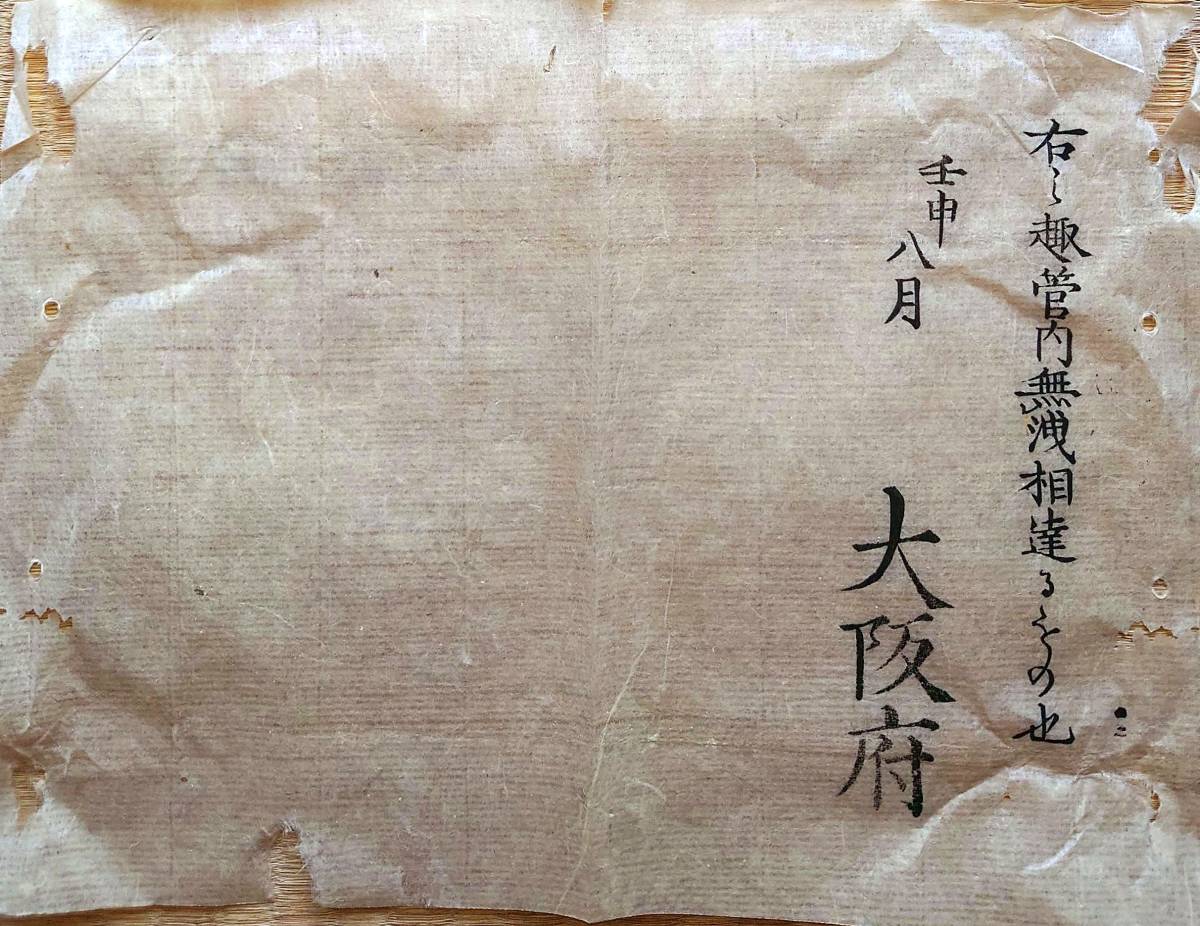 右之趣管内無洩相達るもの也
壬申八月
大阪府